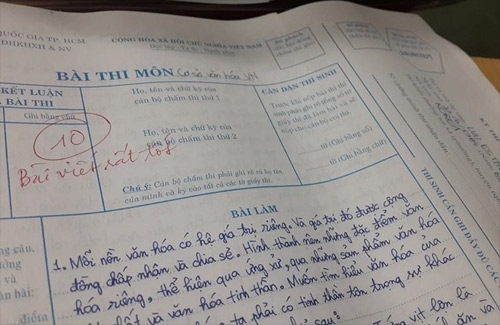 QUỐC GIA TP. HCM
ĐHKHXH & NV
CỘNG HÒA XÃ HỘI CHỦ NGHĨA VIỆT NAM
BÀI THI MÔN Cơ sở văn hóa VN
KẾT LUẬN
BÀI THI
Ghi bằng chữ
10
Bài viết rất tốt
Họ, tên và chữ ký của
cán bộ chấm thi thứ 1
Họ, tên và chữ ký của
cán bộ chấm thi thứ 2
Chú ý: Cán bộ chấm thi phải ghi rõ họ tên
của mình và ký vào tất cả các tờ giấy thi.
CĂN DẶN THÍ SINH
Trước khi nộp bài thi thí
sinh phải ghi rõ ràng số tờ
giấy thi đã làm bài và sẽ
nộp cho cán bộ coi thi.
tờ (Ghi bằng số)
tờ (Ghi bằng chữ)
THÍ SINH CẦN GHI ĐẦY ĐỦ CÁC
BÀI LÀM
1. Mỗi nền văn hóa có hệ giá trị riêng. Và giá trị đó được cộng
đồng chấp nhận và chia sẻ. Hình thành nên những đặc điểm văn
hóa riêng, thể hiện qua ứng xử, qua những sản phẩm văn hóa
vật chất và văn hóa tinh thần. Muốn tìm hiểu văn hóa của
ta phải có tinh thần tôn trọng sự khác
điểm